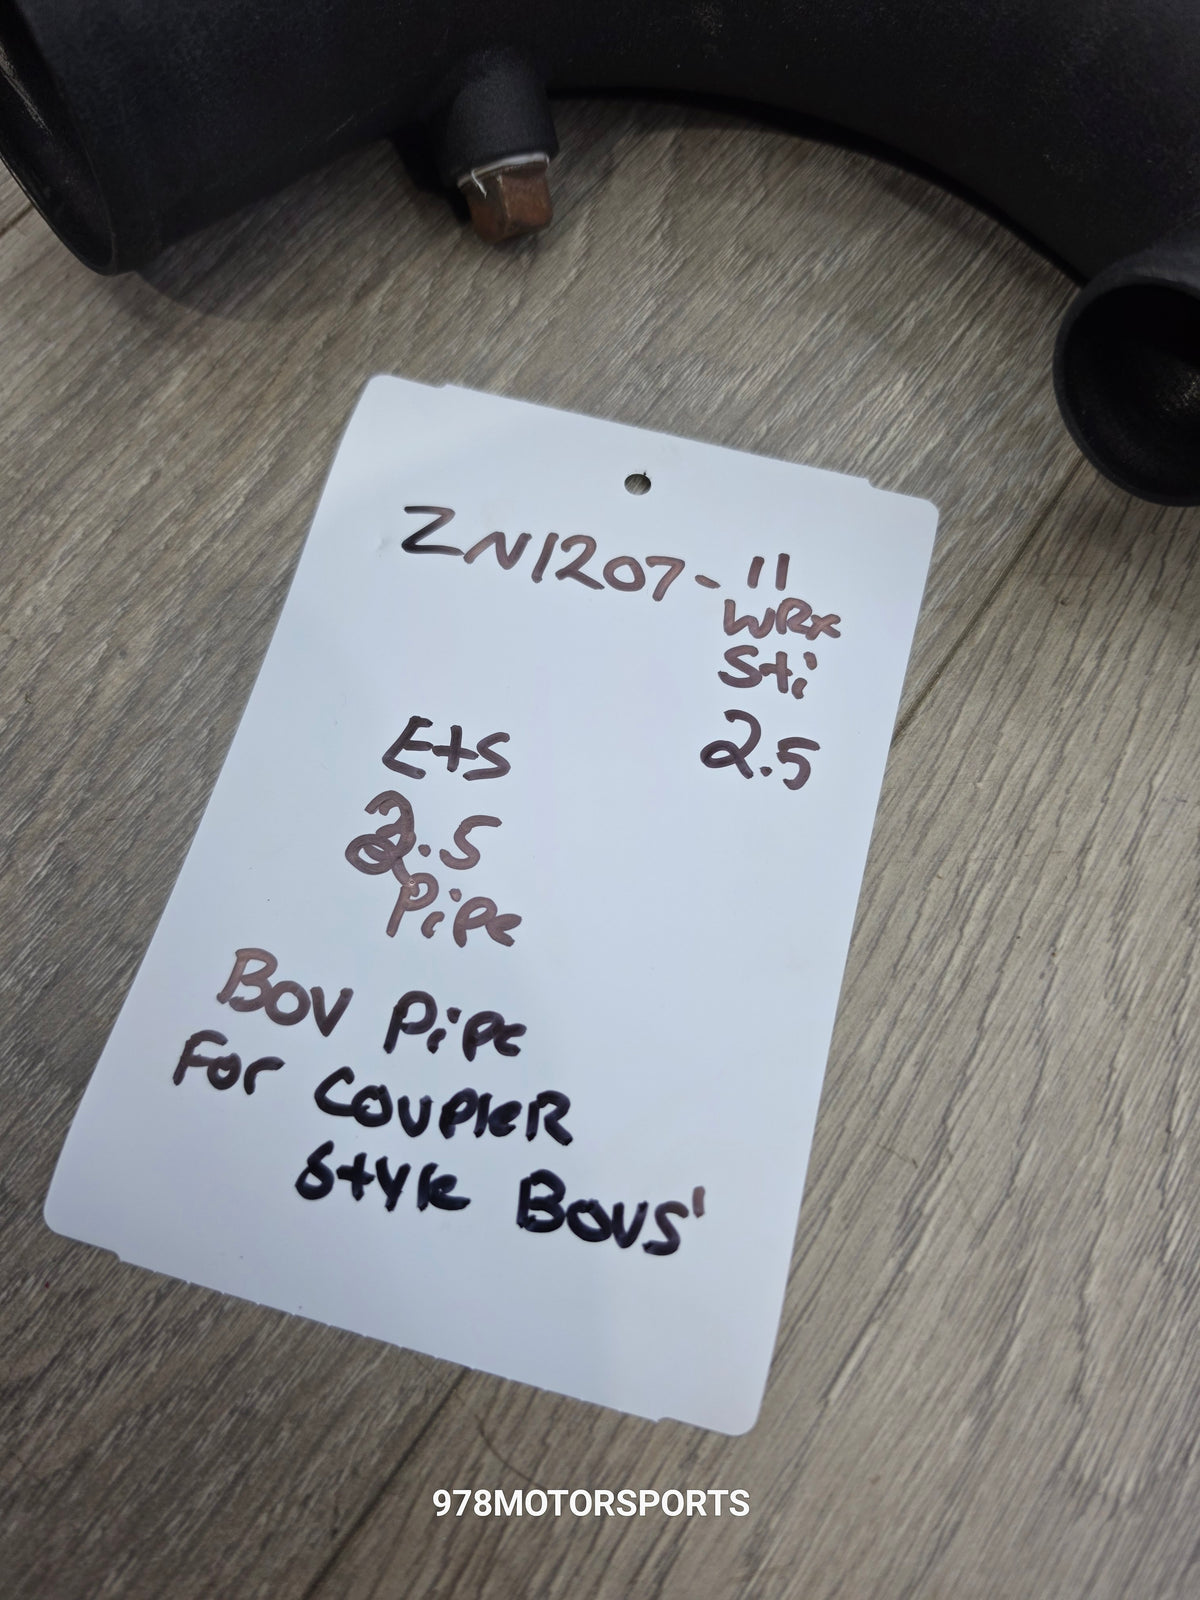 ZN1207-11
WRx
Sti
2.5
EtS
2.5
Pipe
BOV Pipe
For COUPleR
Style BOVS'
978MOTORSPORTS